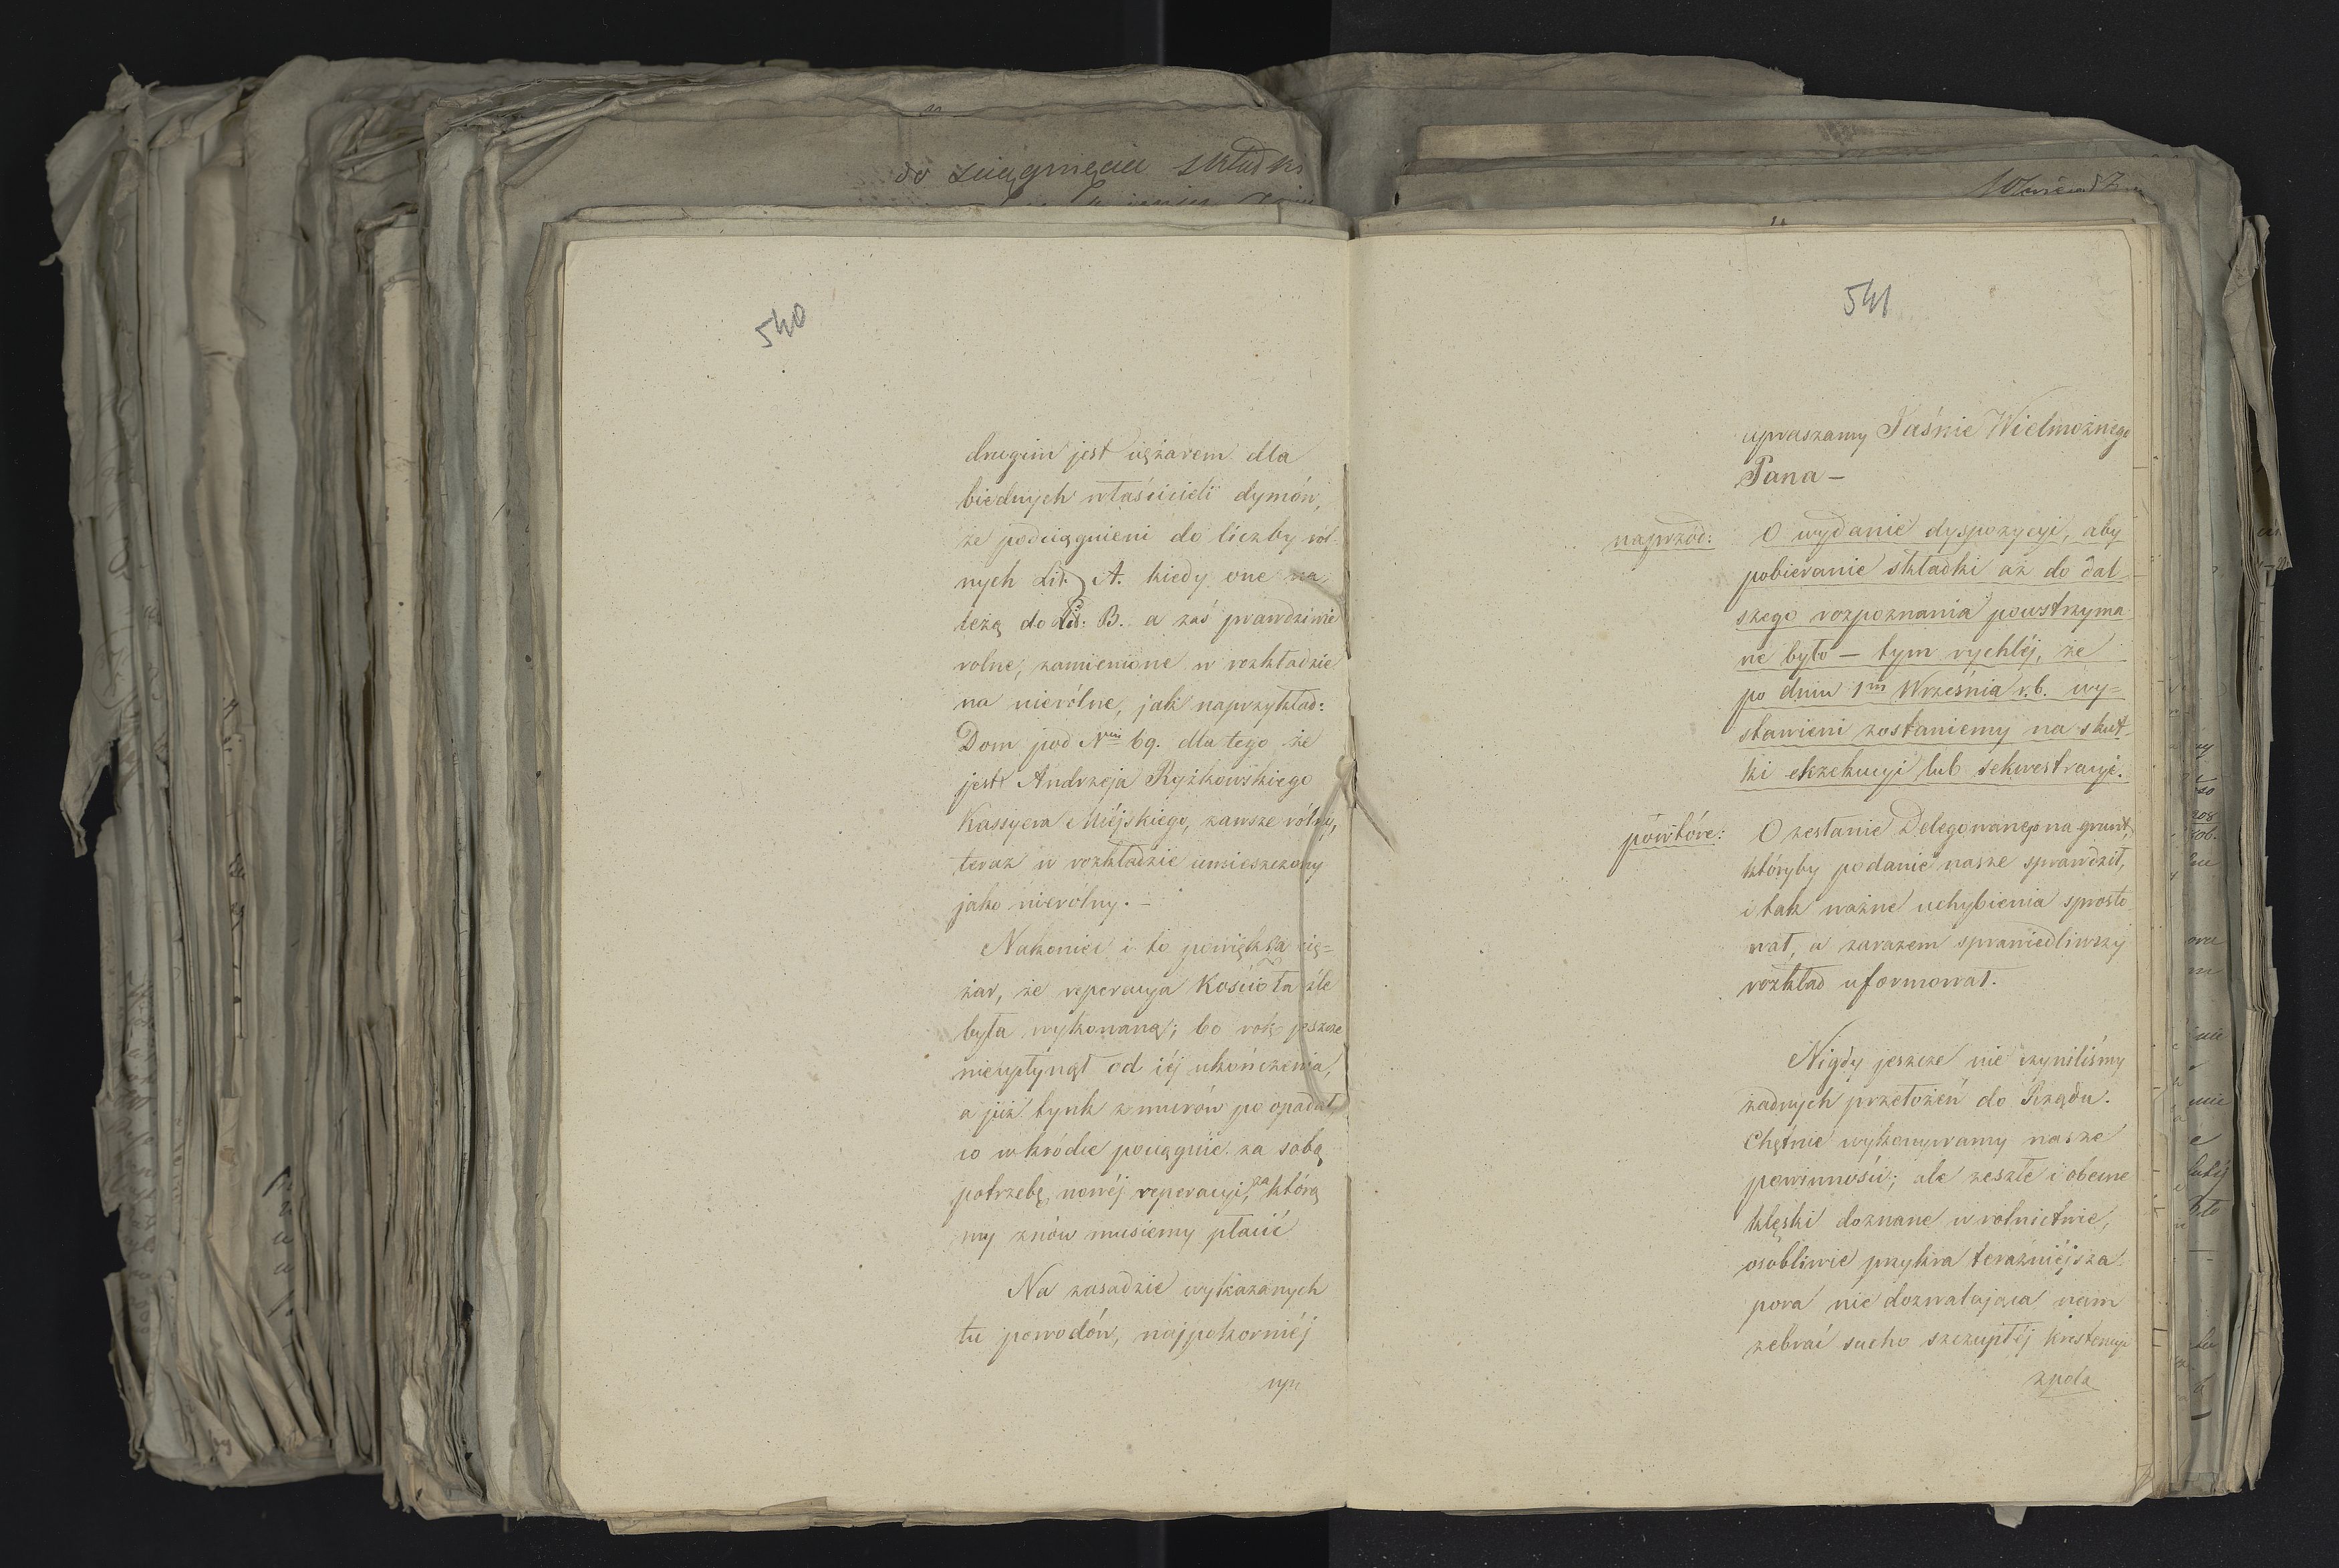 do zciągnięcia składki
540
drugim jest ciężarem dla
biednych właścicieli dymów,
że podciągnieni do liczby rol-
nych Lit. A. kiedy one na,
leżą do Lit: B. a zaś prawdziwie
rolne, zamienione w rozkładzie
na nierólne, jak naprzykład:
Dom pod Nrm 69. dla tego że
jest Andrzeja Ryżkowskiego
Kassyera Miéjskiego, zawsze rólny,
teraz w rozkładzie umieszczony
jako nierólny. –
Nakoniec i to powiększa cię=
żar, że reperacyja Kościoła źle
była wykonaną; bo rok jeszcze
nieupłynął od iéj ukończenia,
a już tynk z murów po opadał,
co wkródce pociągnie za sobą
potrzebę nowéj reperacyi, za którą
my znów musiemy płacić
Na zasadzie wykazanych
tu powodów, najpokorniéj
upr
541
upraszamy Jaśnie Wielmożnego
Pana –
naprzód: O wydanie dyspozycyi, aby
pobieranie składki aż do dal-
szego rozpoznania powstrzyma
ne było – tym rychléj, że
po dniu 1m Września r.b. wy=
stawieni zostaniemy na skut-
ki ekzekucyi lub sekwestracyi.
powtóre: O zesłanie Delegowanego na grunt,
któryby podanie nasze sprawdził,
i tak ważne uchybienia sprosto
wał, a zarazem sprawiedliwszy
rozkład uformował.
Nigdy jeszcze nie czyniliśmy
żadnych przełożeń do Rządu.
Chętnie wykonywamy nasze
powinności; ale zeszłe i obecne
klęski doznane w rolnictwie,
osobliwie przykra teraźniéjsza
pora nie dozwalająca nam
zebrać sucho szczupłéj krestencyi
zpola